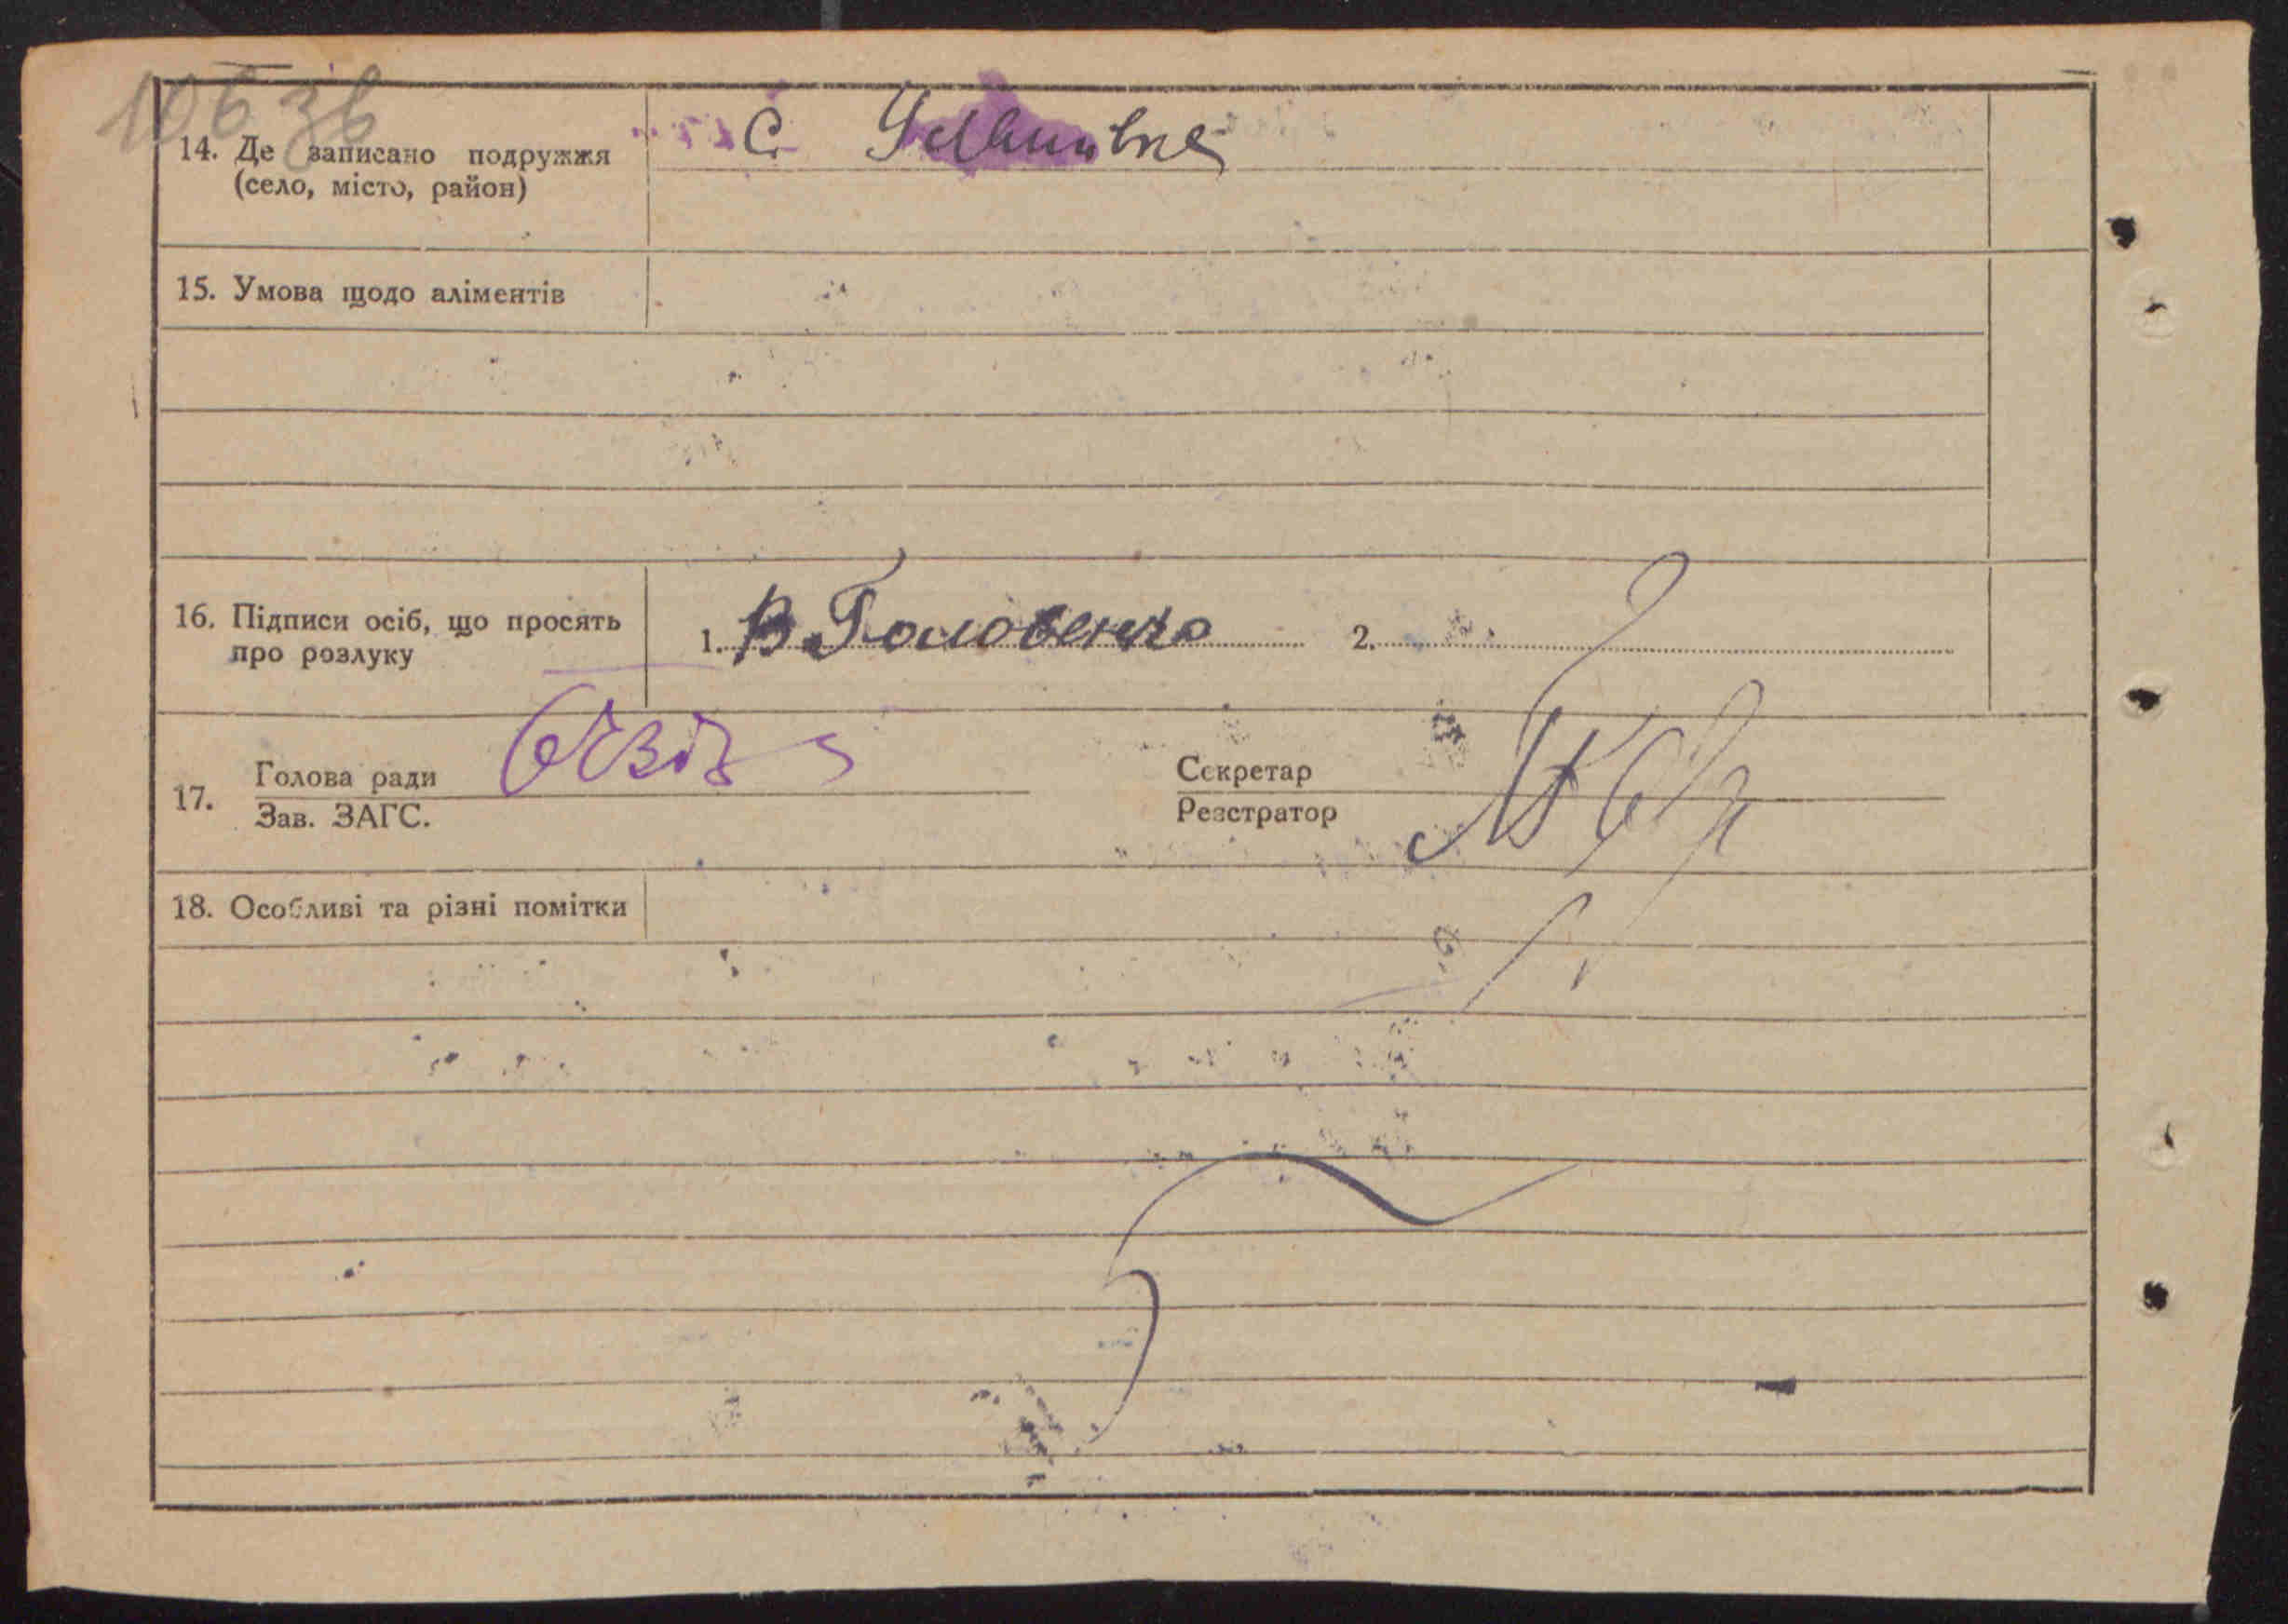 106 зв
14. Де записано подружжя
(село, місто, район)
С.
15. Умова щодо аліментів
16. Підписи осіб, що просять
про розлуку
1. В. Головенко 2.
17. Голова ради
Зав. ЗАГС.
Секретар
Реєстратор
18. Особливі та різні помітки